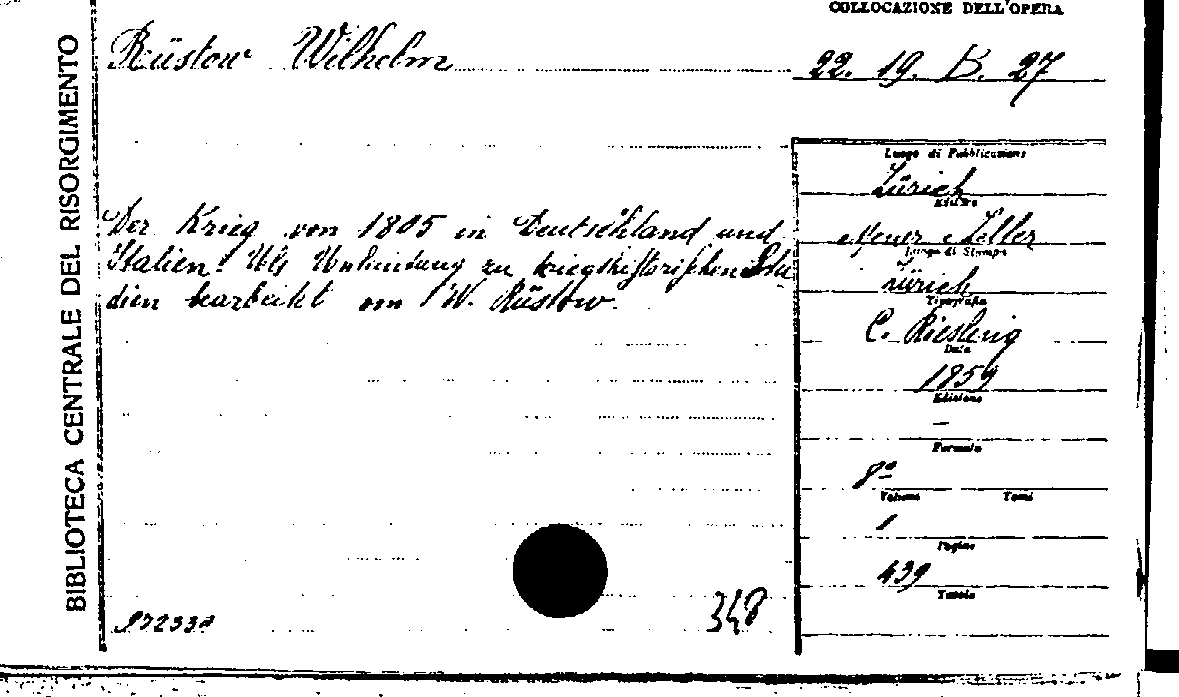 COLLOCAZIONE DELL'OPERA
Rüstow Wilhelm
22. 19. B. 27
BIBLIOTECA CENTRALE DEL RISORGIMENTO
Der Krieg von 1805 in Deutschland und
Italien. Als Anleitung zu kriegshistorischen Stu
dien bearbeitet von W. Rüstow.
Luogo di Pubblicazione
Zürich
Editore
Meyer & Zeller
Luogo di Stampa
Zürich
Tipografia
C. Kiesling
Data
1859
Edizione
–
Formato
8º
Volume Tomi
1
Pagine
439
Tavole
348